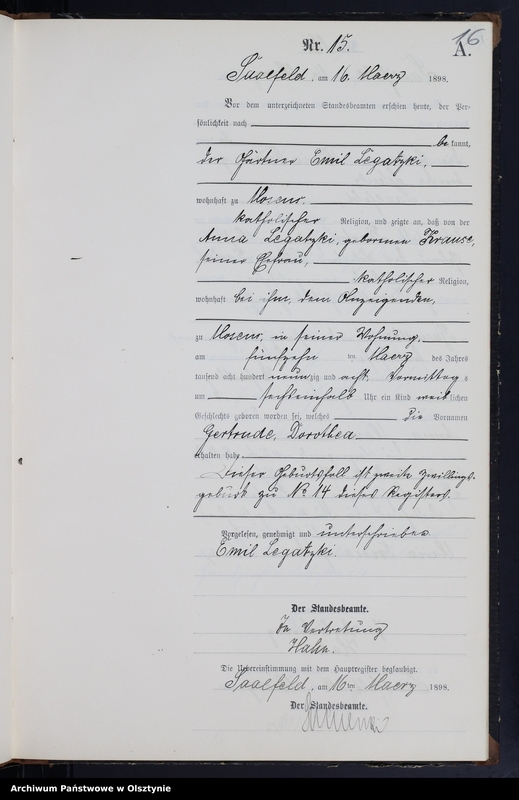 16
A.
Nr. 15.
Saalfeld, am 16. Maerz 1898.
Vor dem unterzeichneten Standesbeamten erschien heute, der Per-
sönlichkeit nach
bekannt,
der Gärtner Emil Legatzki,
wohnhaft zu Mosens,
katholischer Religion, und zeigte an, daß von der
Anna Legatzki, geborenen Krause,
seiner Ehefrau,
katholischer Religion,
wohnhaft bei ihm, dem Anzeigenden,
zu Mosens, in seiner Wohnung,
am fünfzehn ten Maerz des Jahres
tausend acht hundert neunzig und acht, Vormittags
um sechseinhalb Uhr ein Kind weiblichen
Geschlechts geboren worden sei, welches die Vornamen
Gertrude, Dorothea
erhalten habe.
Dieser Geburtsfall ist zweite Zwillings-
geburt zu No 14 dieses Registers.
Vorgelesen, genehmigt und unterschrieben
Emil Legatzki.
Der Standesbeamte.
In Vertretung
Hahn.
Die Uebereinstimmung mit dem Hauptregister beglaubigt.
Saalfeld, am 16ten Maerz 1898.
Der Standesbeamte.
Archiwum Państwowe w Olsztynie